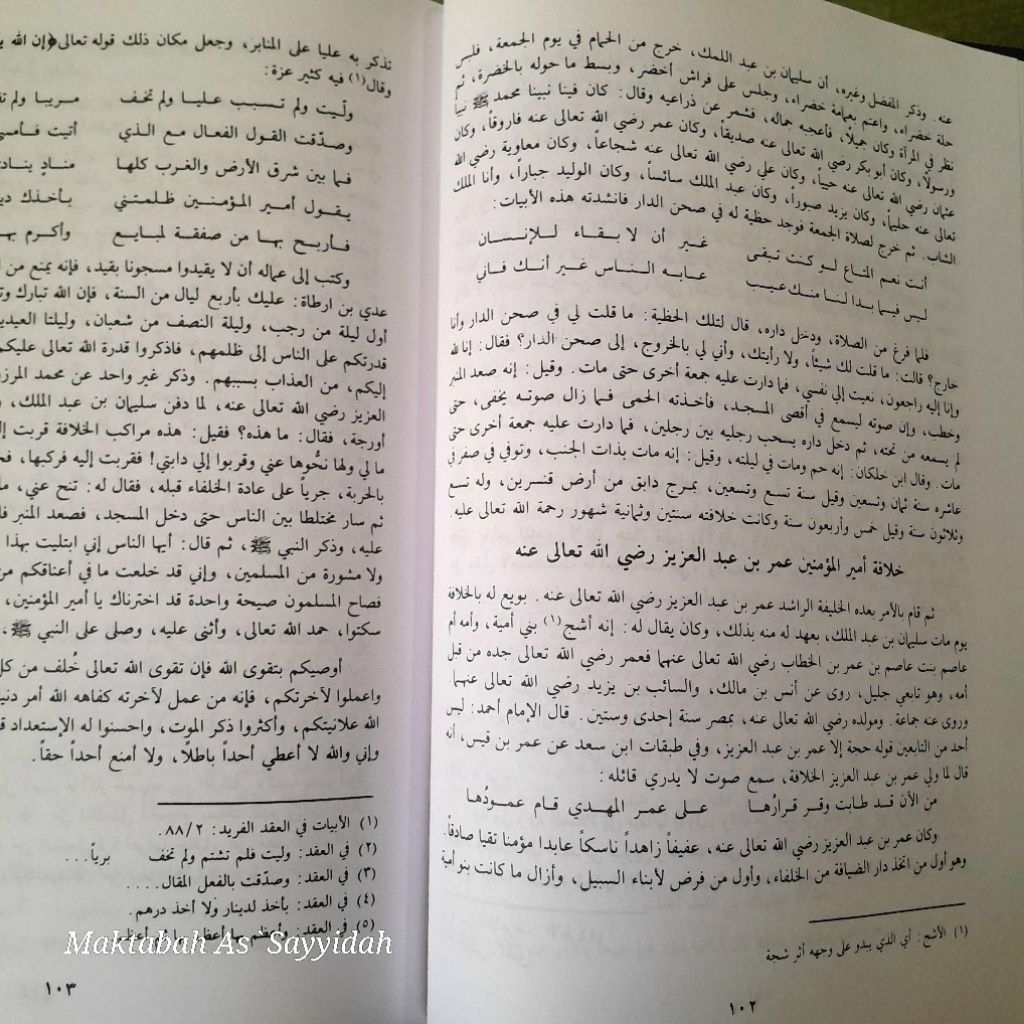 عنه. وذكر المفضل وغيره، أن سليمان بن عبد الملك، خرج من الحمام في يوم الجمعة، فلبس
حلة خضراء، واعتم بعمامة خضراء، وجلس على فراش أخضر، وبسط ما حوله بالخضرة، ثم
نظر في المرأة وكان جميلاً، فاعجبه جماله، فشمر عن ذراعيه وقال: كان فينا نبينا محمد ﷺ نبياً
ورسولاً، وكان أبو بكر رضي الله تعالى عنه صديقاً، وكان عمر رضي الله تعالى عنه فاروقاً، وكان
عثمان رضي الله تعالى عنه حيياً، وكان علي رضي الله تعالى عنه شجاعاً، وكان معاوية رضي الله
تعالى عنه حليماً، وكان يزيد صبوراً، وكان عبد الملك سائساً، وكان الوليد جباراً، وأنا الملك
الشاب. ثم خرج لصلاة الجمعة فوجد حظية له في صحن الدار فانشدته هذه الأبيات:
أنت نعم المتاع لو كنت تبقى غير أن لا بقاء للإنسان
ليس فيما بدا لنا منك عيب عابه الناس غير أنك فاني
فلما فرغ من الصلاة، ودخل داره، قال لتلك الحظية: ما قلت لي في صحن الدار وأنا
خارج؟ قالت: ما قلت لك شيئاً، ولا رأيتك، وأني لي بالخروج، إلى صحن الدار؟ فقال: إنا لله
وإنا إليه راجعون، نعيت إلي نفسي، فما دارت عليه جمعة أخرى حتى مات. وقيل: إنه صعد المنبر
وخطب، وإن صوته ليسمع في أقصى المسجد، فأخذته الحمى فما زال صوته يخفى، حتى
لم يسمعه من تحته، ثم دخل داره يسحب رجليه بين رجلين، فما دارت عليه جمعة أخرى حتى
مات. وقال ابن خلكان: إنه حم ومات في ليلته، وقيل: إنه مات بذات الجنب، وتوفي في صفر في
عاشره سنة ثمان وتسعين وقيل سنة تسع وتسعين، بمرج دابق من أرض قنسرين، وله تسع
وثلاثون سنة وقيل خمس وأربعون سنة وكانت خلافته سنتين وثمانية شهور رحمة الله تعالى عليه.
خلافة أمير المؤمنين عمر بن عبد العزيز رضي الله تعالى عنه
ثم قام بالأمر بعده الخليفة الراشد عمر بن عبد العزيز رضي الله تعالى عنه. بويع له بالخلافة
يوم مات سليمان بن عبد الملك، بعهد له منه بذلك، وكان يقال له: إنه أشج(١) بني أمية، وأمه أم
عاصم بنت عاصم بن عمر بن الخطاب رضي الله تعالى عنهما فعمر رضي الله تعالى جده من قبل
أمه، وهو تابعي جليل، روى عن أنس بن مالك، والسائب بن يزيد رضي الله تعالى عنهما.
وروى عنه جماعة. ومولده رضي الله تعالى عنه، بمصر سنة إحدى وستين. قال الإمام أحمد: ليس
أحد من التابعين قوله حجة إلا عمر بن عبد العزيز، وفي طبقات ابن سعد عن عمر بن قيس، أنه
قال لما ولي عمر بن عبد العزيز الخلافة، سمع صوت لا يدري قائله:
من الآن قد طابت وقر قرارُها على عمر المهدي قام عمودُها
وكان عمر بن عبد العزيز رضي الله تعالى عنه، عفيفاً زاهداً ناسكاً عابدا مؤمنا تقيا صادقاً.
وهو أول من اتخذ دار الضيافة من الخلفاء، وأول من فرض لأبناء السبيل، وأزال ما كانت بنو أمية
(١) الأشج: أي الذي يبدو على وجهه أثر شجة.
١٠٢
تذكر به عليا على المنابر، وجعل مكان ذلك قوله تعالى ﴿إن الله
وقال(١) فيه كثير عزة:
ولّيت ولم تسبب عليا ولم تخف مريبا ولم
وصدّقت القول الفعال مع الذي أتيت
فما بين شرق الأرض والغرب كلها منادٍ
يقول أمير المؤمنين ظلمتني بأخذك
فأربح بها من صفقة لمبايع وأكرم
وكتب إلى عماله أن لا يقيدوا مسجونا بقيد، فإنه يمنع من
عدي بن ارطاة: عليك بأربع ليال من السنة، فإن الله تبارك
أول ليلة من رجب، وليلة النصف من شعبان، وليلتا
قدرتكم على الناس إلى ظلمهم، فاذكروا قدرة الله تعالى عليكم
إليكم، من العذاب بسببهم. وذكر غير واحد عن محمد
العزيز رضي الله تعالى عنه، لما دفن سليمان بن عبد الملك،
أورجة، فقال: ما هذه؟ فقيل: هذه مراكب الخلافة قربت
ما لي ولها نحُّوها عني وقربوا إلي دابتي! فقربت إليه فركبها،
بالحربة، جرياً على عادة الخلفاء قبله، فقال له: تنح عني،
ثم سار مختلطا بين الناس حتى دخل المسجد، فصعد المنبر
عليه، وذكر النبي ﷺ، ثم قال: أيها الناس إني ابتليت بهذا
ولا مشورة من المسلمين، وإني قد خلعت ما في أعناقكم
فصاح المسلمون صيحة واحدة قد اخترناك يا أمير المؤمنين،
سكتوا، حمد الله تعالى، وأثنى عليه، وصلى على النبي ﷺ،
أوصيكم بتقوى الله فإن تقوى الله تعالى خُلف من كل
واعملوا لآخرتكم، فإنه من عمل لآخرته كفاه الله أمر
الله علانيتكم، وأكثروا ذكر الموت، واحسنوا له الإستعداد
وإني والله لا أعطي أحداً باطلًا، ولا أمنع أحداً حقاً.
(١) الأبيات في العقد الفريد: ٨٨/٢.
(٢) في العقد: وليت فلم تشتم ولم تخف برياً...
(٣) في العقد: وصدّقت بالفعل المقال....
(٤) في العقد: بأخذ لدينار ولا أخذ درهم.
(٥) في العقد:
Maktabah As Sayyidah
١٠٣